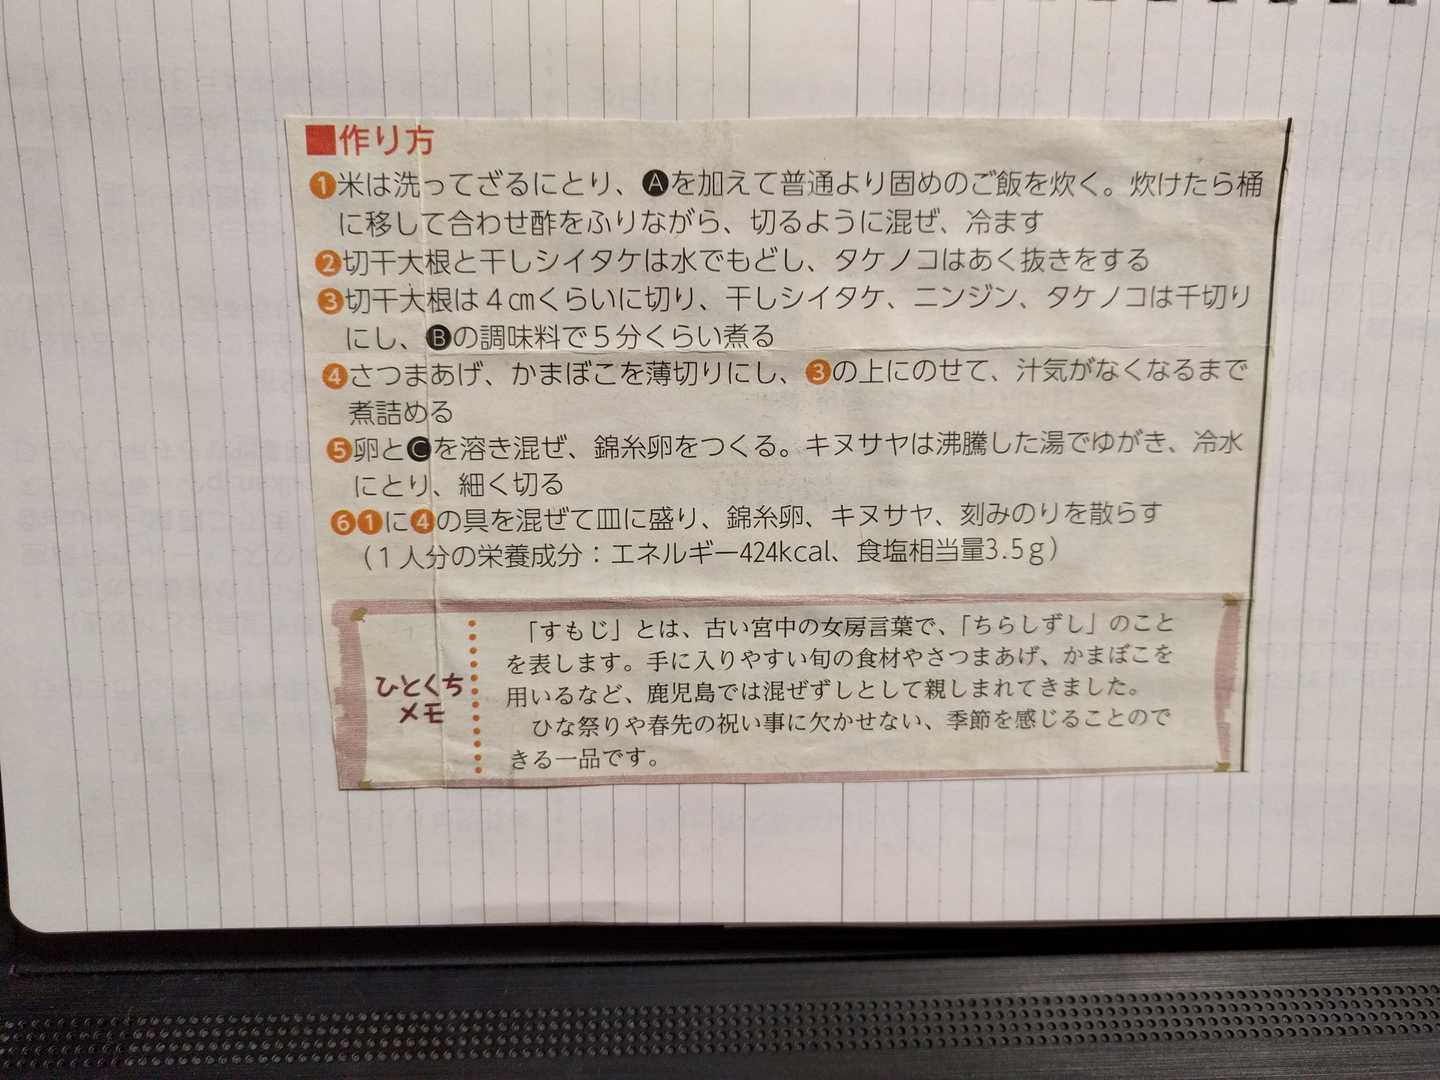 ■作り方
❶米は洗ってざるにとり、🅐を加えて普通より固めのご飯を炊く。炊けたら桶
に移して合わせ酢をふりながら、切るように混ぜ、冷ます
❷切干大根と干しシイタケは水でもどし、タケノコはあく抜きをする
❸切干大根は４㎝くらいに切り、干しシイタケ、ニンジン、タケノコは千切り
にし、🅑の調味料で５分くらい煮る
❹さつまあげ、かまぼこを薄切りにし、❸の上にのせて、汁気がなくなるまで
煮詰める
❺卵と🅒を溶き混ぜ、錦糸卵をつくる。キヌサヤは沸騰した湯でゆがき、冷水
にとり、細く切る
❻❶に❹の具を混ぜて皿に盛り、錦糸卵、キヌサヤ、刻みのりを散らす
（１人分の栄養成分：エネルギー424kcal、食塩相当量3.5ｇ）
ひとくち
メモ
「すもじ」とは、古い宮中の女房言葉で、「ちらしずし」のこと
を表します。手に入りやすい旬の食材やさつまあげ、かまぼこを
用いるなど、鹿児島では混ぜずしとして親しまれてきました。
ひな祭りや春先の祝い事に欠かせない、季節を感じることので
きる一品です。